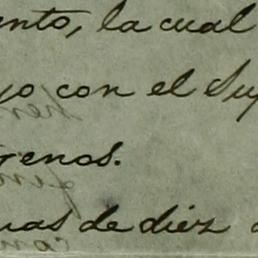 ento, la cual
yo con el Sup
renos.
uas de diéz